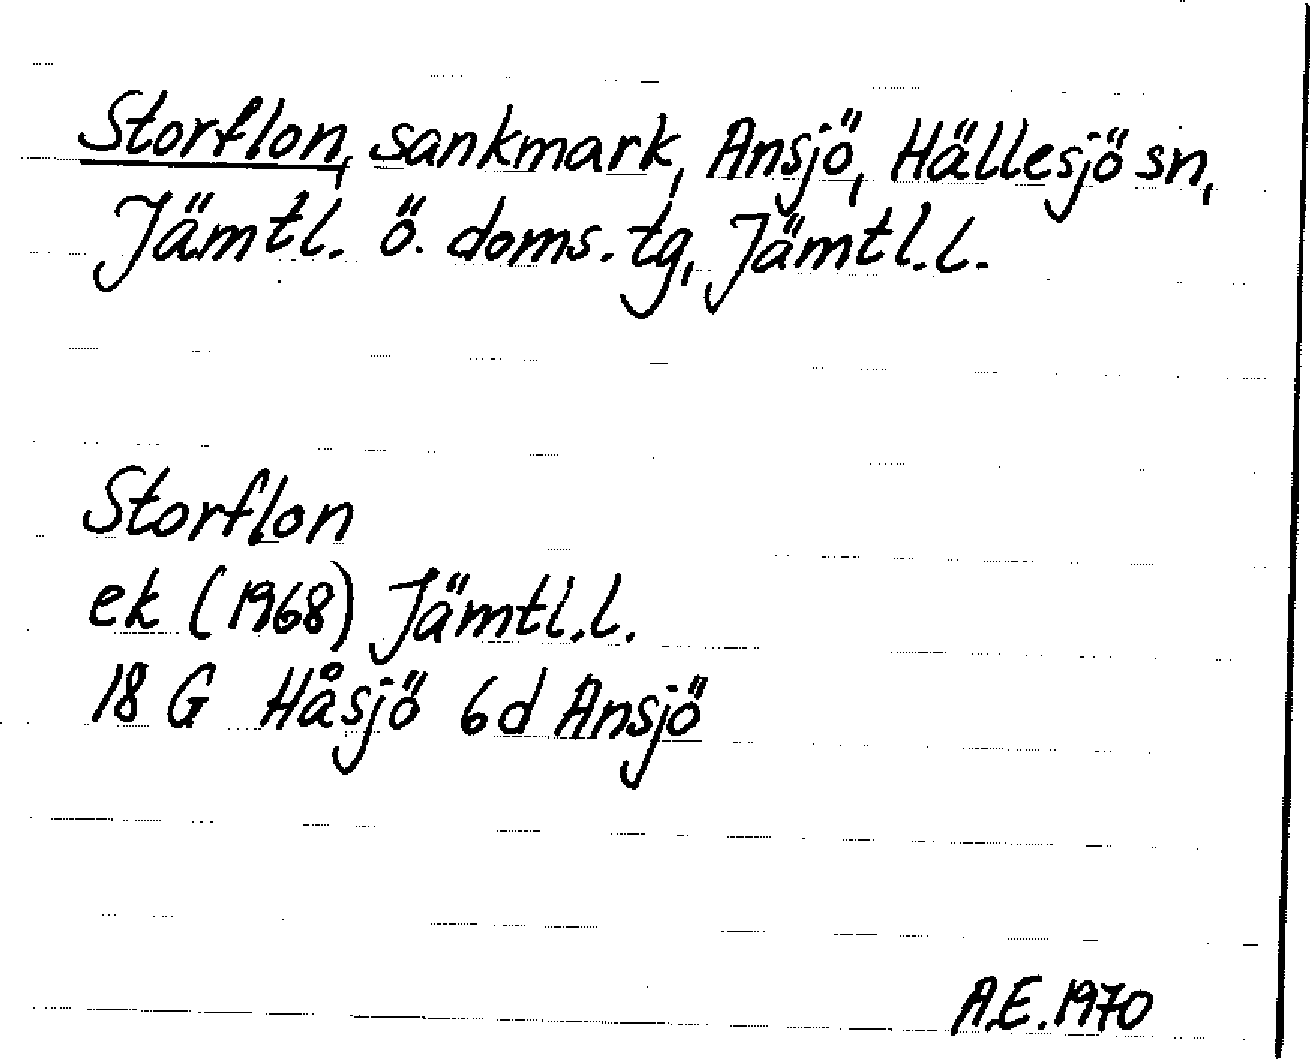 Storflon, sankmark, Ansjö, Hällesjö sn,
Jämtl. ö. doms. tg, Jämtl.l.
Storflon
ek (1968) Jämtl.l.
18 G Håsjö 6d Ansjö
A.E. 1970